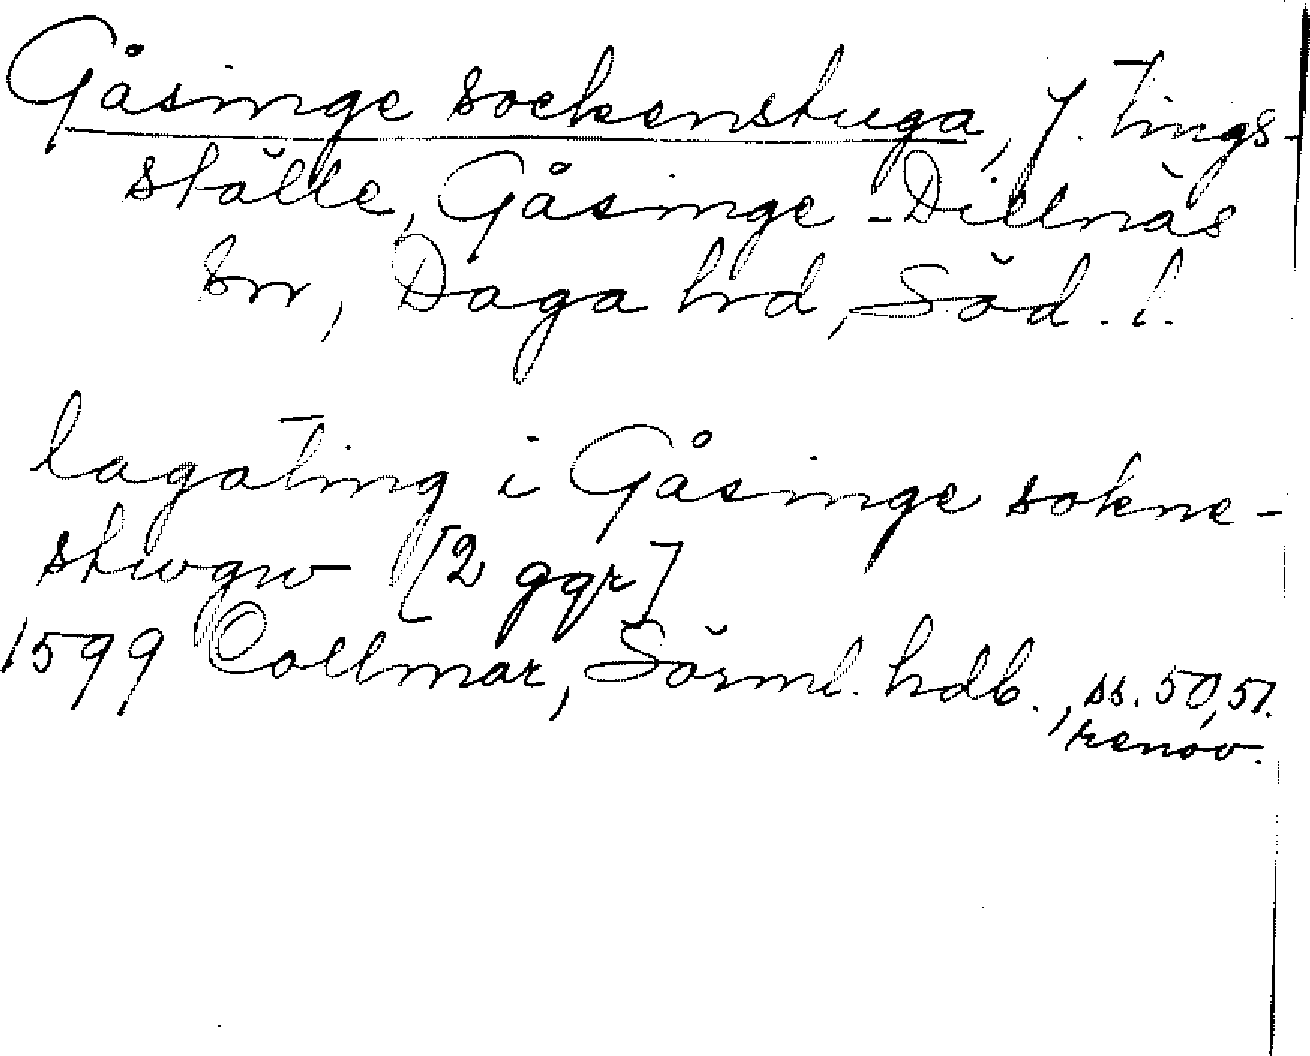 Gåsinge sockenstuga, f. tings-
ställe, Gåsinge-Dillnäs
sn, Daga hrd, Söd. l.
lagating i Gåsinge sokne-
stwgw [2 ggr]
1599 Collmar, Sörml. hdb., ss. 50, 51.
renov.